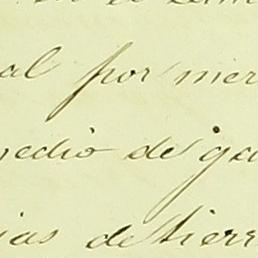 al por mer
medio de ga
ias de tierr